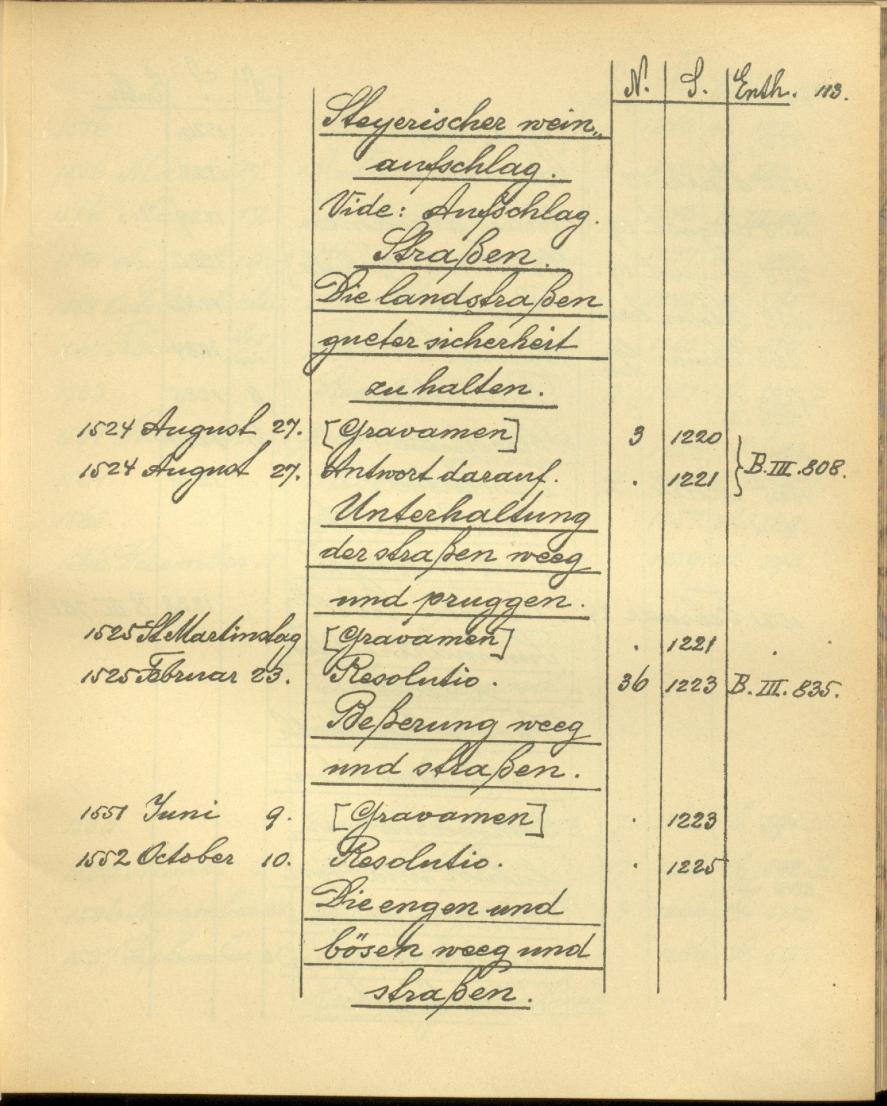 N. S. Enth. 113.
Steyerischer wein„
aufschlag.
Vide: Aufschlag.
Straßen.
Die landstraßen
gueter sicherheit
zu halten.
1524 August 27. [Gravamen] 3 1220
1524 August 27. Antwort darauf. . 1221 } B. III. 808.
Unterhaltung
der straßen weeg
und pruggen.
1525 St Martinstag [Gravamen] . 1221 .
1525 Februar 23. Resolutio. 36 1223 B. III. 835.
Beßerung weeg
und straßen.
1551 Juni 9. [Gravamen] . 1223
1552 October 10. Resolutio. . 1225
Die engen und
bösen weeg und
straßen.